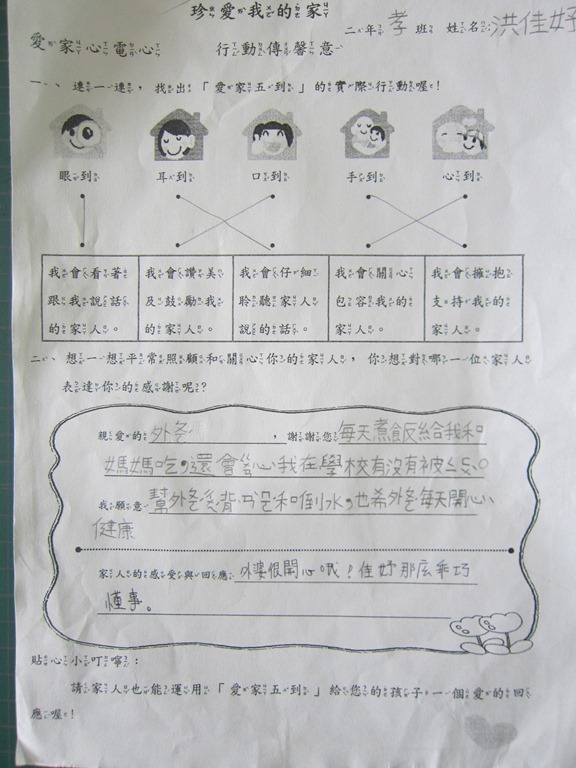 珍愛我的家
二年孝班 姓名:洪佳妤
愛家心電心 行動傳馨意
一、連一連,找出「愛家五到」的實際行動喔!
眼到 耳到 口到 手到 心到
我會看著跟我說話的家人。
我會讚美及鼓勵我的家人。
我會仔細聆聽家人說的話。
我會關心包容我的家人。
我會擁抱支持我的家人。
二、想一想平常照顧和關心你的家人,你想對哪一位家人
表達你的感謝呢?
親愛的外婆,謝謝您每天煮飯給我和
媽媽吃,還會關心我在學校有沒有被
我願意幫外婆搥背ㄋㄧㄝ和倒水,也希外婆每天開心、
健康
家人的感受與回應:外婆很開心哦!佳妤那么乖巧
懂事。
貼心小叮嚀:
請家人也能運用「愛家五到」給您的孩子一個愛的回
應喔!